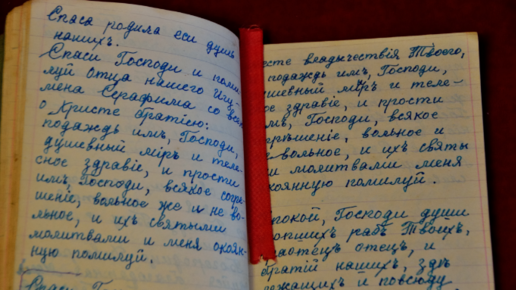 Спаса родила еси душъ
нашихъ.
Спаси Господи и поми-
луй отца нашего Игу-
мена Серафима со всею
о Христе братiею:
подаждь имъ, Господи,
душевный мiръ и теле-
сное здравiе, и прости
имъ, Господи, всякое согрѣ-
шенiе, вольное же и не во-
льное, и ихъ святыми
молитвами и меня окаян-
ную помилуй.
Спаси
владычествiя Твоего,
подаждь имъ, Господи,
мiръ и теле-
здравiе, и прости
Господи, всякое
вольное и
вольное, и ихъ святы
молитвами меня
окоянную помилуй.
Господи души
рабъ Твоихъ,
отецъ, и
братiй нашихъ, здѣ
лежащихъ и повсюду